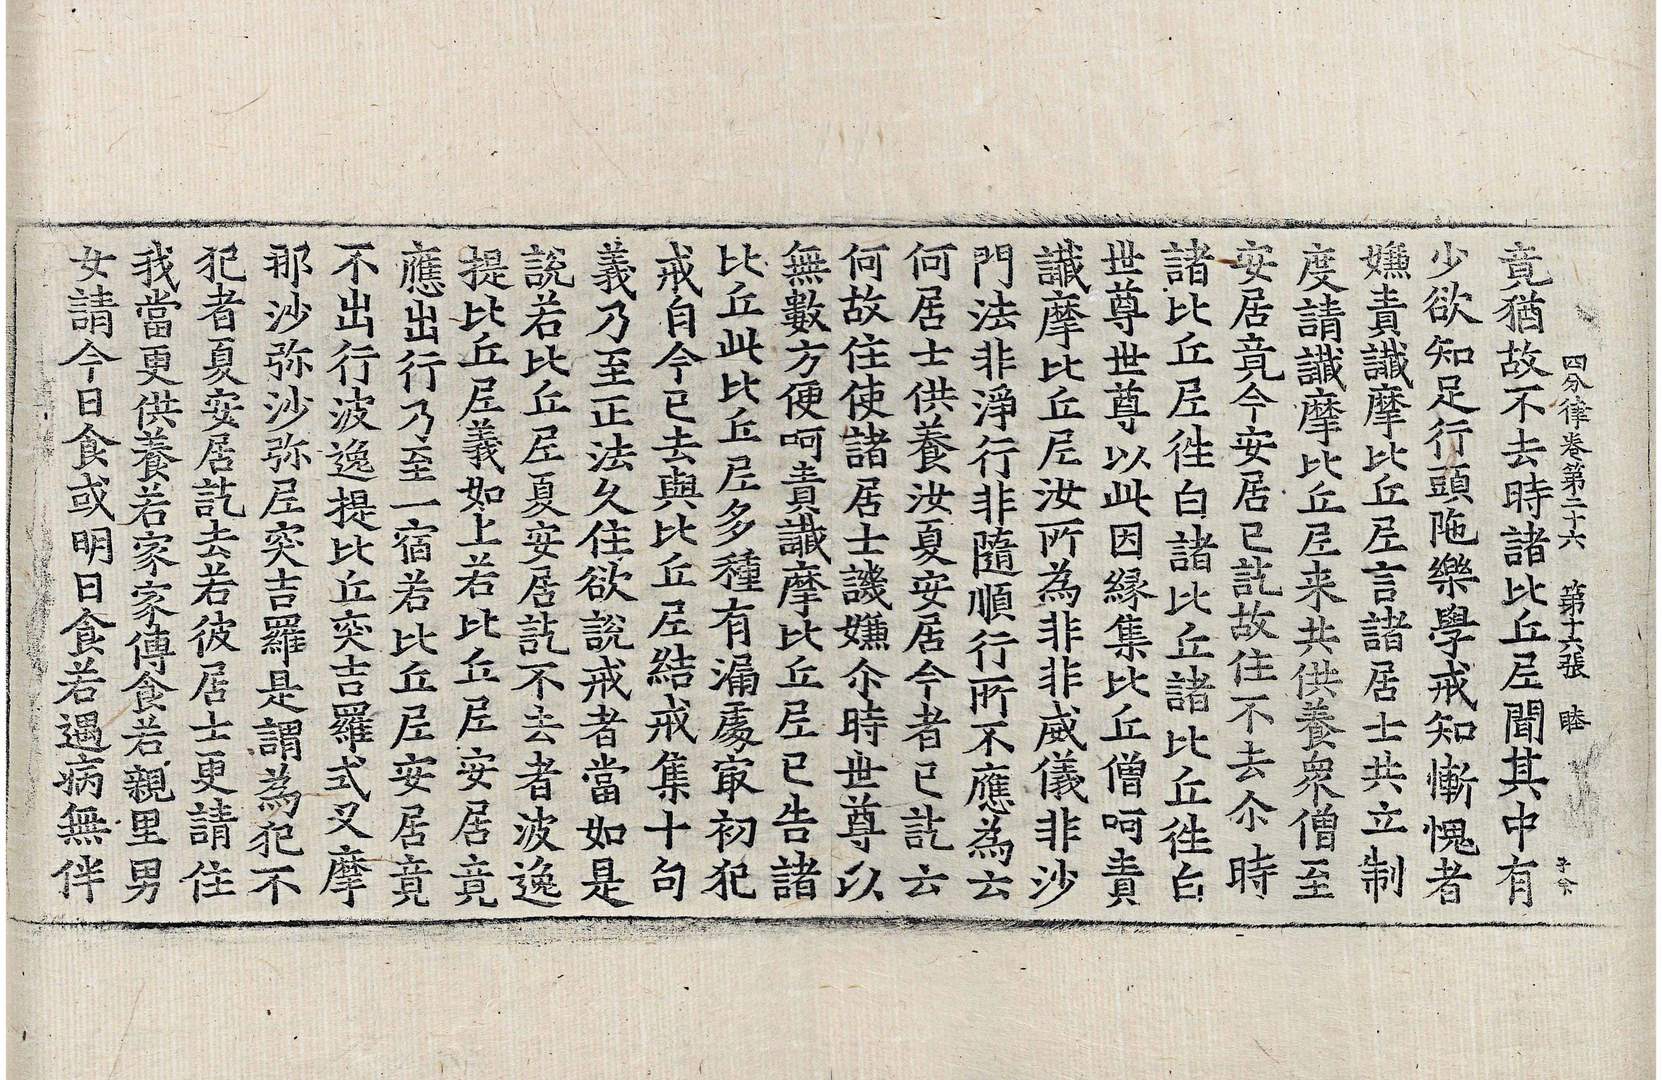 四分律卷第二十六　第十六張　睦
竟猶故不去時諸比丘尼聞其中有
少欲知足行頭陁樂學戒知慚愧者
嫌責讖摩比丘尼言諸居士共立制
度請讖摩比丘尼来共供養衆僧至
安居竟今安居已訖故住不去尒時
諸比丘尼徃白諸比丘諸比丘徃白
世尊世尊以此因緣集比丘僧呵責
讖摩比丘尼汝所為非非威儀非沙
門法非淨行非隨順行所不應為云
何居士供養汝夏安居今者已訖云
何故住使諸居士譏嫌尒時世尊以
無數方便呵責讖摩比丘尼已告諸
比丘此比丘尼多種有漏處㝡初犯
戒自今已去與比丘尼結戒集十句
義乃至正法久住欲說戒者當如是
說若比丘尼夏安居訖不去者波逸
提比丘尼義如上若比丘尼安居竟
應出行乃至一宿若比丘尼安居竟
不出行波逸提比丘突吉羅式叉摩
那沙弥沙弥尼突吉羅是謂為犯不
犯者夏安居訖去若彼居士更請住
我當更供養若家家傳食若親里男
女請今日食或明日食若遇病無伴